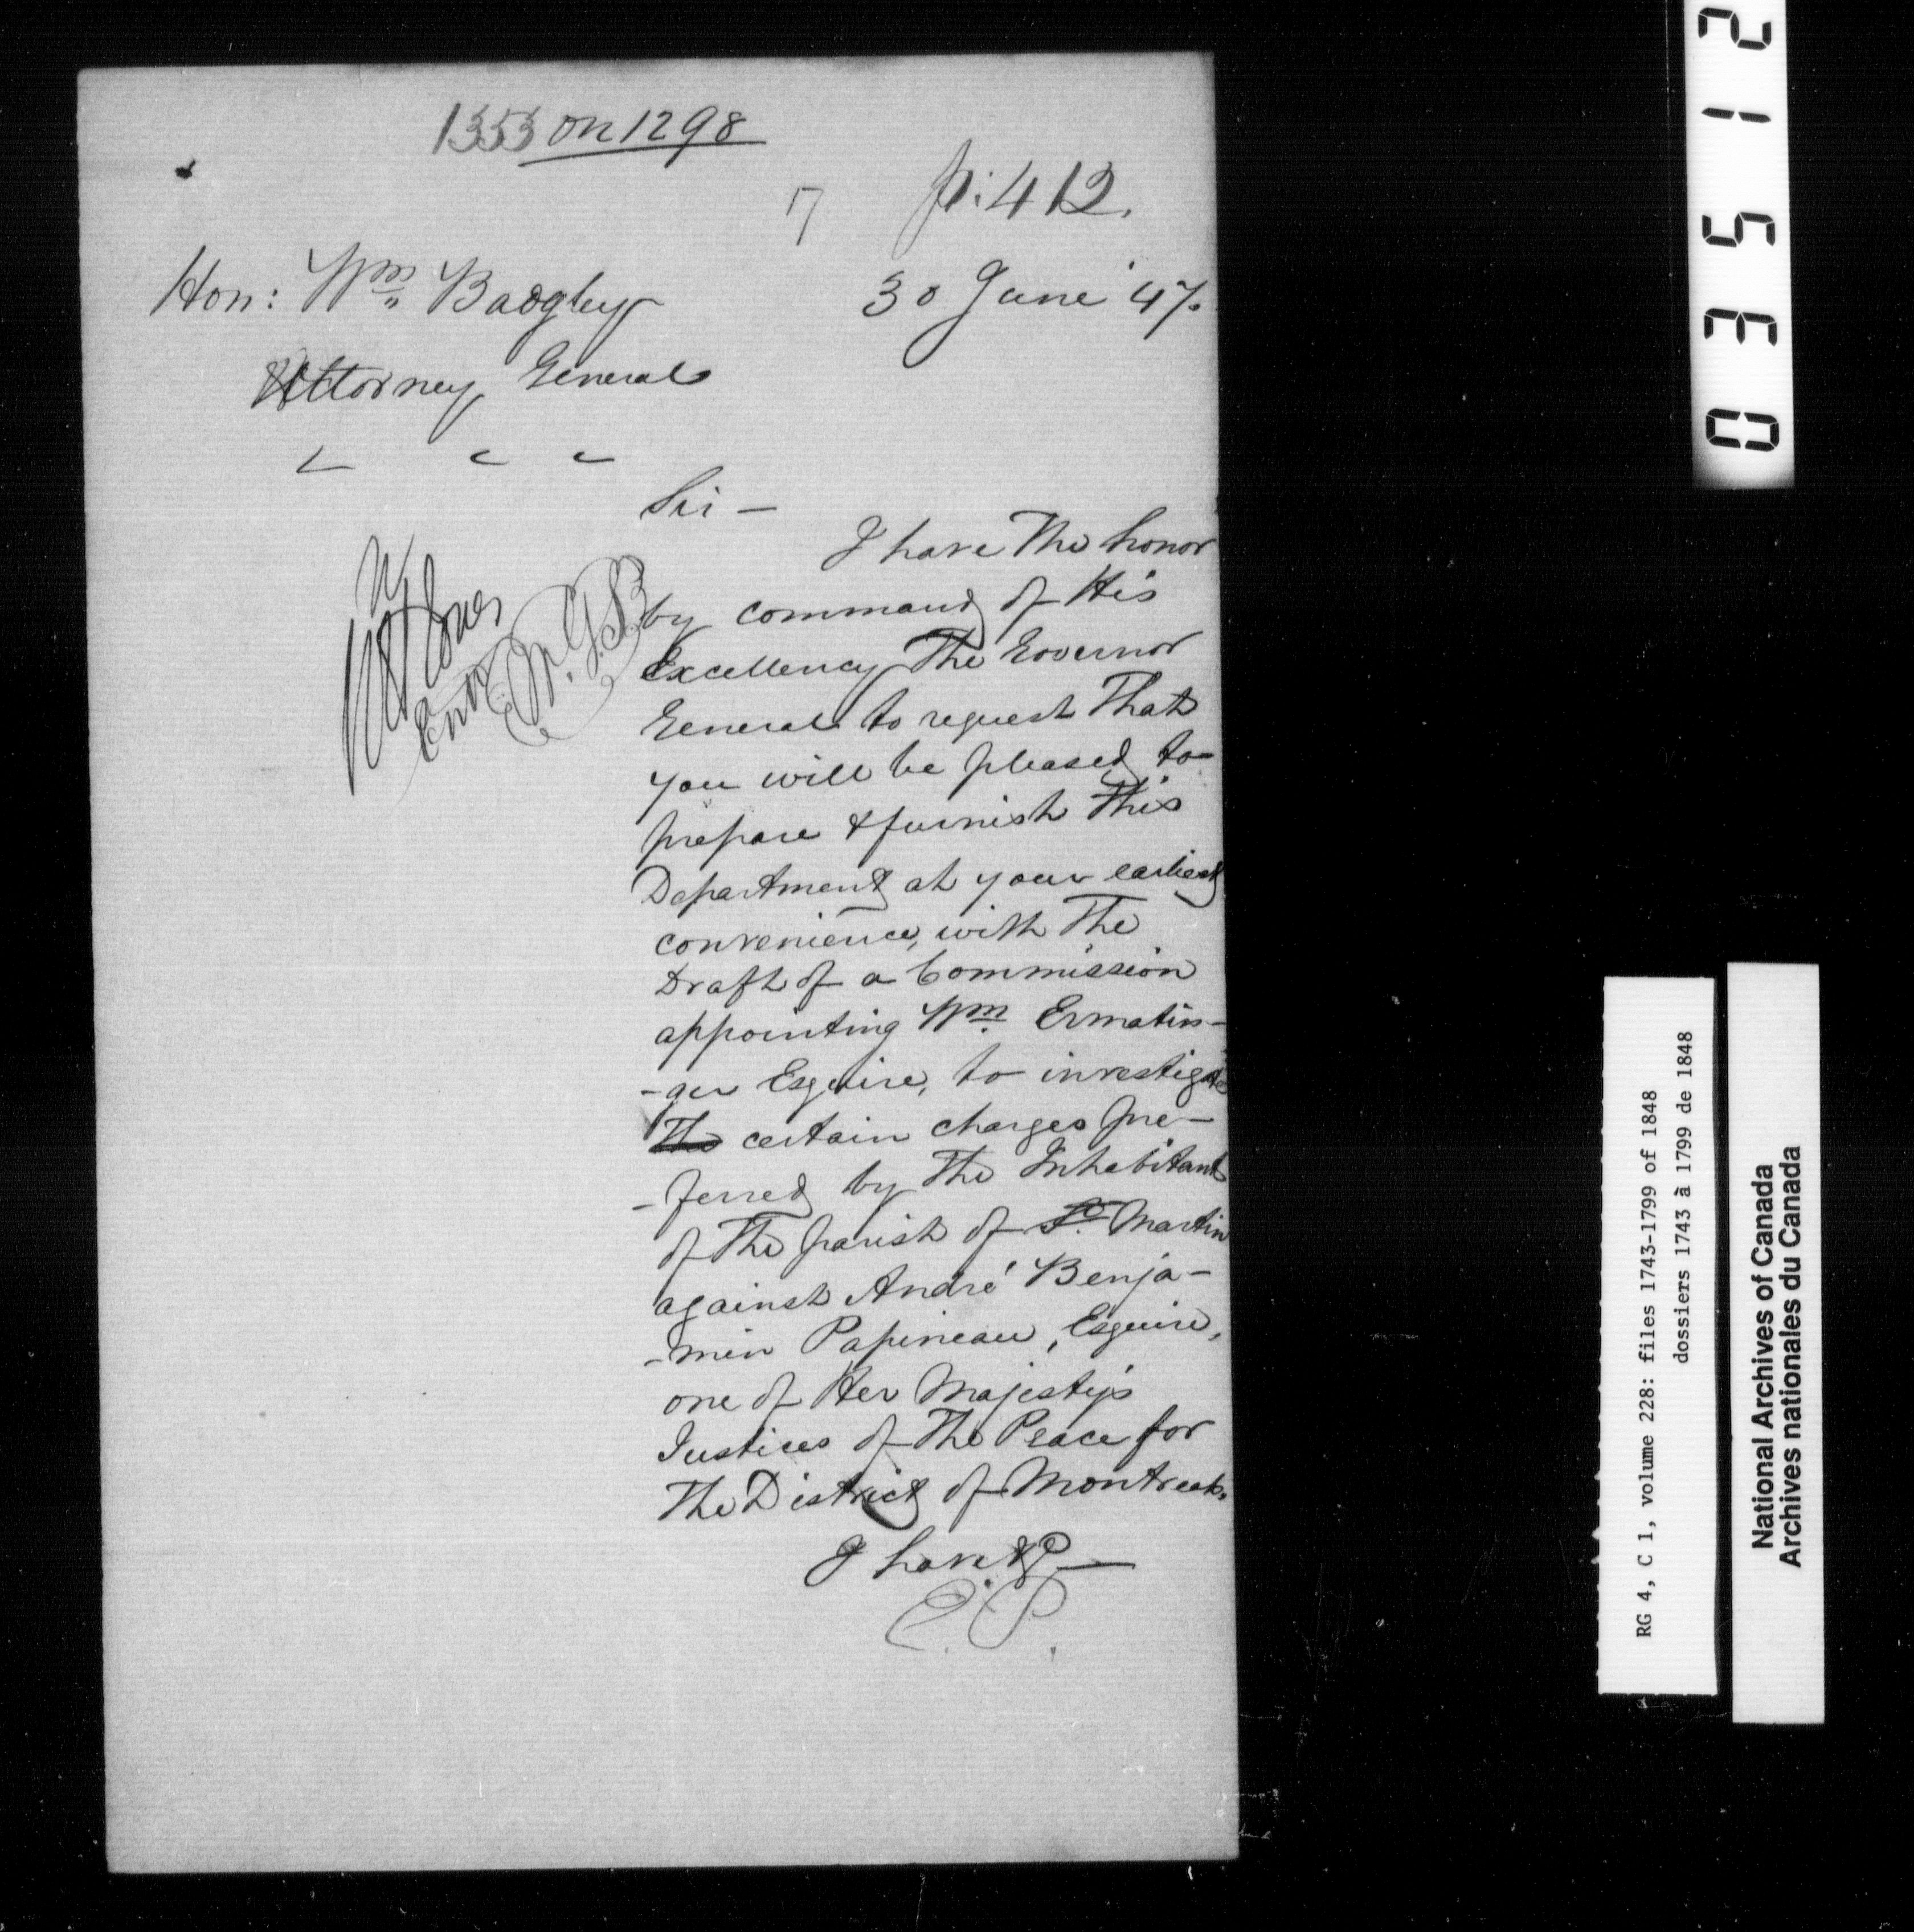 1353 on 1298
7 p: 412.
Hon: Wm Badgley 30 June '47.
Attorney General
Sir —
I have the honor
by command of His
Excellency The Governor
General to request That
you will be pleased to
prepare & furnish This
Department at your earliest
convenience, with The
Draft of a Commission
appointing Wm Ermatin-
-ger Esquire, to investigate
The certain charges pre-
-ferred by The Inhabitants
of The parish of St. Martin
against André Benja-
-min Papineau, Esquire,
one of Her Majesty's
Justices of The Peace for
The District of Montreal.
I have &c —
E. P.
Entd W. G. B.
03512
RG 4, C 1, volume 228: files 1743-1799 of 1848
dossiers 1743 à 1799 de 1848
National Archives of Canada
Archives nationales du Canada